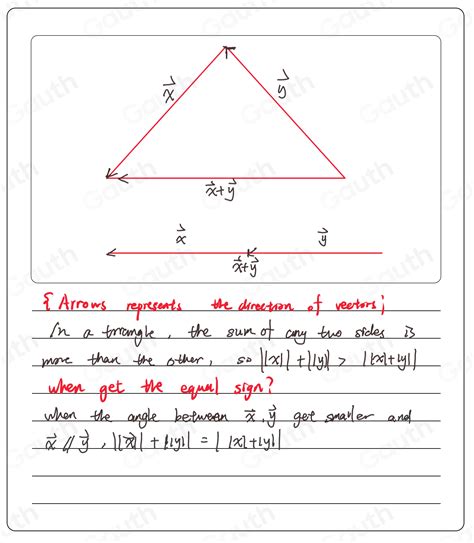 x⃗
y⃗
x⃗+y⃗
x⃗
y⃗
x⃗+y⃗
{ Arrows represents the direction of vectors;
In a triangle, the sum of any two sides is
more than the other, so ||x|| + ||y|| > ||x|+|y||
when get the equal sign?
when the angle between x⃗, y⃗ get smaller and
x⃗ // y⃗, ||x⃗|| + ||y|| = | |x|+|y||
Gauth